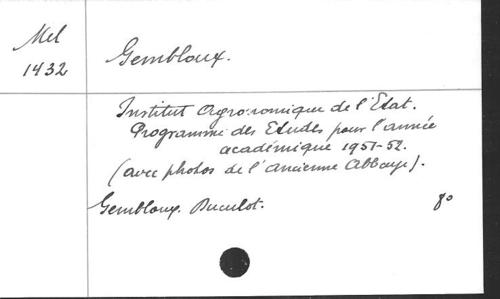 Mel
1432
Gembloux.
Institut Agronomique de l'Etat.
Programme des Etudes pour l'année
académique 1951-52.
(avec photos de l'ancienne Abbaye).
Gembloux. Duculot. 8º